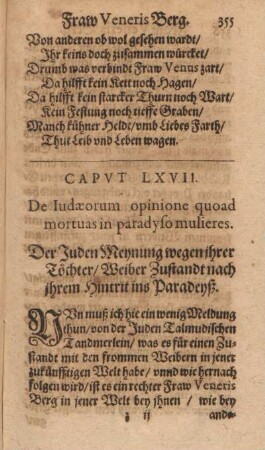 Fraw Veneris Berg. 355
Von anderen ob wol gesehen wardt/
Ihr keins doch zusammen würcket/
Drumb was verbindt Fraw Venus zart/
Da hilfft kein Kett noch Hagen/
Da hilfft kein starcker Thurn noch Wart/
Kein Festung noch tieffe Graben/
Manch kühner Heldt/vmb Liebes Farth/
Thut Leib vnd Leben wagen.
CAPVT LXVII.
De Iudæorum opinione quoad
mortuas in paradyso mulieres.
Der Juden Meynung wegen jhrer
Töchter/Weiber Zustandt nach
jhrem Hintrit ins Paradeyß.
NVn muß ich hie ein wenig Meldung
thun/von der Juden Talmudischen
Tandmerlein/was es für einen Zu-
standt mit den frommen Weibern in jener
zukünfftigen Welt habe/vnnd wie hernach
folgen wird/ist es ein rechter Fraw Veneris
Berg in jener Welt bey jhnen/wie bey
z ij ande-